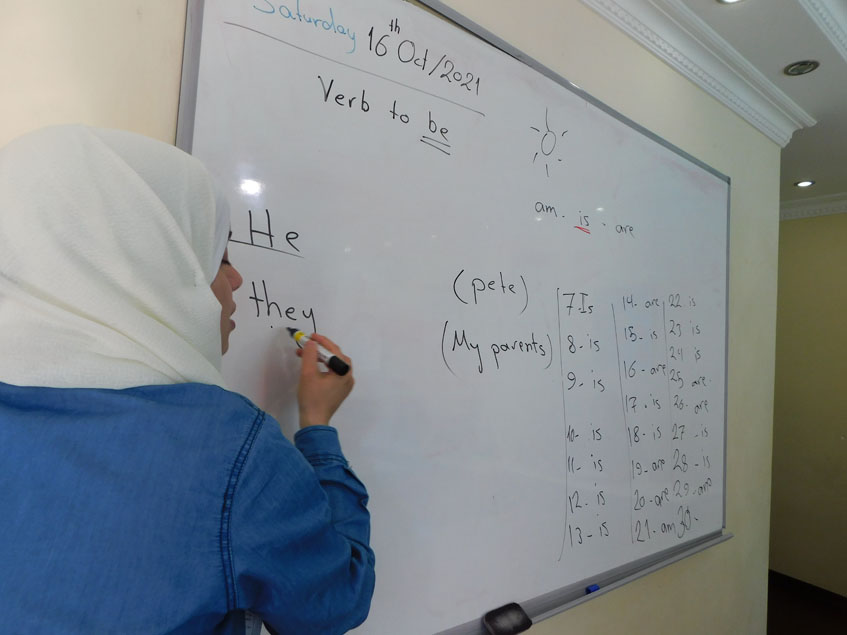 Saturday 16th Oct/2021
Verb to be
am - is - are
He
(pete)
they
(My parents)
7 Is
8 - is
9 - is
10 - is
11 - is
12 - is
13 - is
14 - are
15 - is
16 - are
17 - is
18 - is
19 - are
20 - are
21 - am
22 is
23 is
24 is
25 are
26 - are
27 - is
28 - is
29 -
30 -